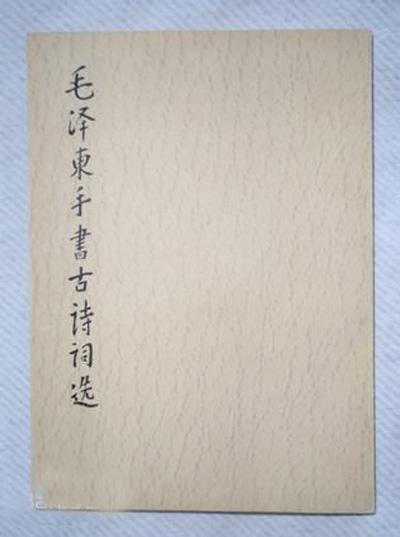 毛泽東手書古诗词选